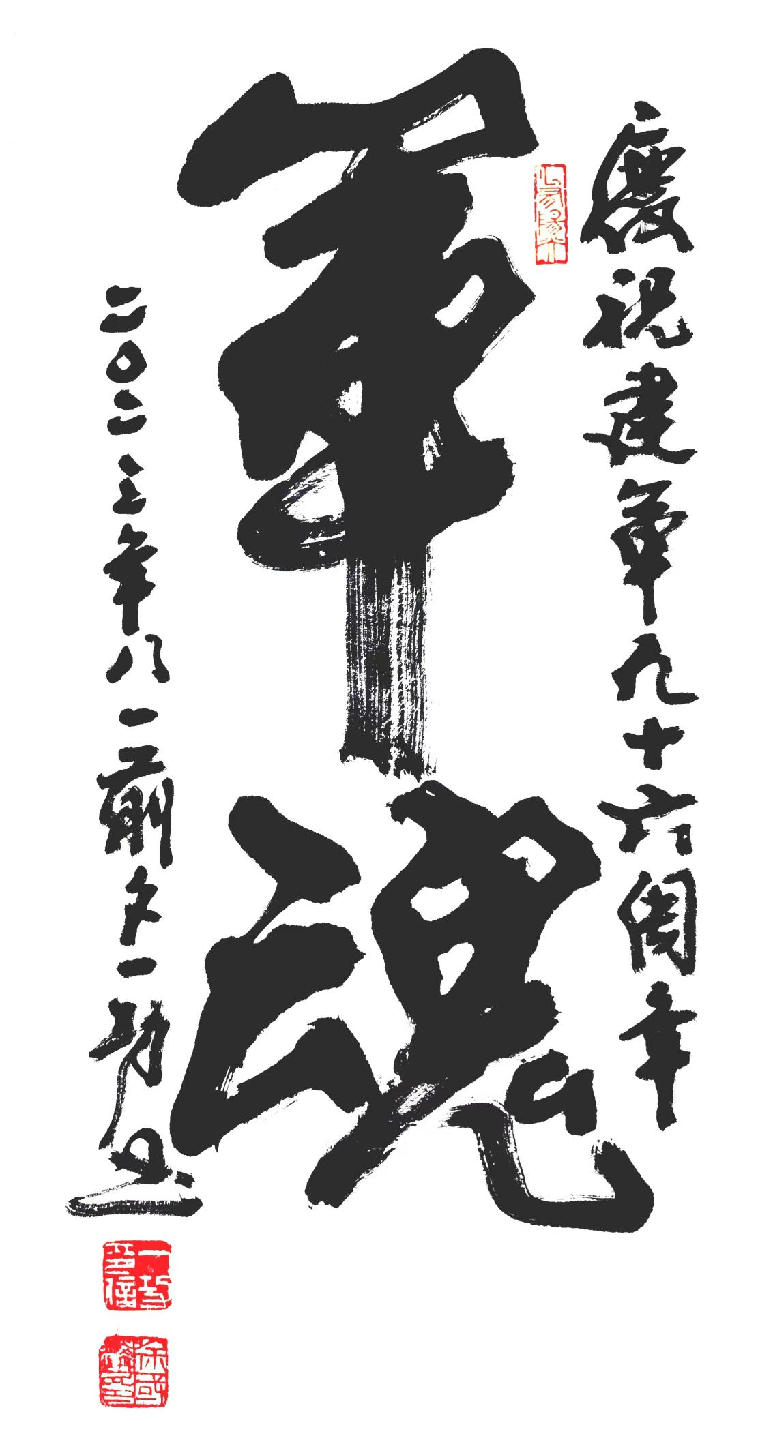 慶祝建軍九十六周年
軍魂
二〇二三年八一前夕一哲书